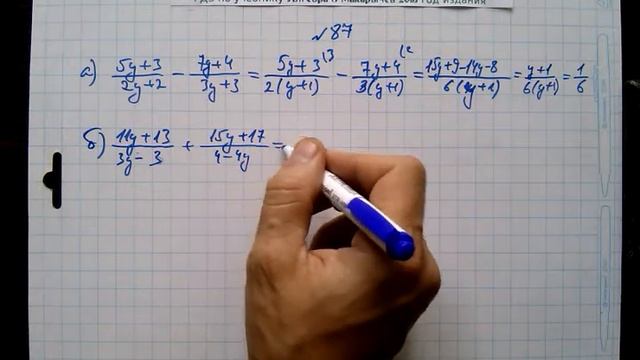 ГДЗ по учебнику Алгебра 8 Макарычев год издания
№87
а) (5y+3)/(2y+2) − (7y+4)/(3y+3) = (5y+3)/(2(y+1)) ⁽³ − (7y+4)/(3(y+1)) ⁽² = (15y+9−14y−8)/(6(y+1)) = (y+1)/(6(y+1)) = 1/6
б) (11y+13)/(3y−3) + (15y+17)/(4−4y) =